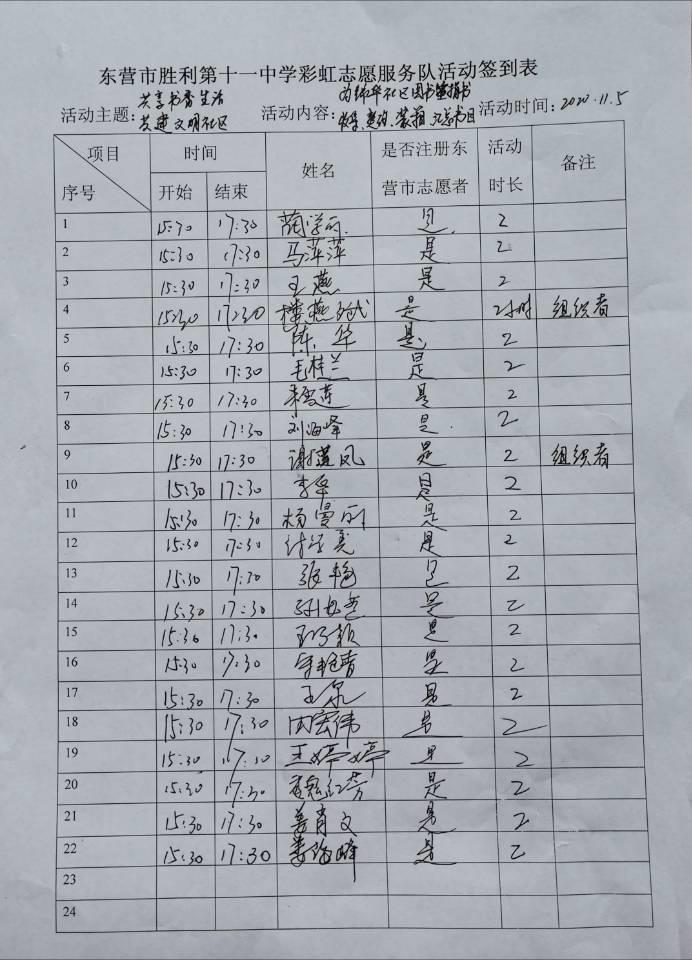 东营市胜利第十一中学彩虹志愿服务队活动签到表
活动主题：共享书香生活 共建文明社区
活动内容：社区图书 活动时间：2020.11.5
项目 序号 时间 姓名 是否注册东营市志愿者 活动时长 备注
开始 结束
1 15:30 17:30 是 2
2 15:30 17:30 马萍萍 是 2
3 15:30 17:30 王燕 是 2
4 15:30 17:30 是 2小时 组织者
5 15:30 17:30 陈华 是 2
6 15:30 17:30 毛桂兰 是 2
7 15:30 17:30 是 2
8 15:30 17:30 刘海峰 是 2
9 15:30 17:30 谢莲凤 是 2 组织者
10 15:30 17:30 李华 是 2
11 15:30 17:30 杨曼丽 是 2
12 15:30 17:30 是 2
13 15:30 17:30 张艳 是 2
14 15:30 17:30 是 2
15 15:30 17:30 是 2
16 15:30 17:30 是 2
17 15:30 17:30 王泉 是 2
18 15:30 17:30 田宏伟 是 2
19 15:30 17:30 王婷婷 是 2
20 15:30 17:30 魏红芳 是 2
21 15:30 17:30 姜青文 是 2
22 15:30 17:30 是 2
23
24